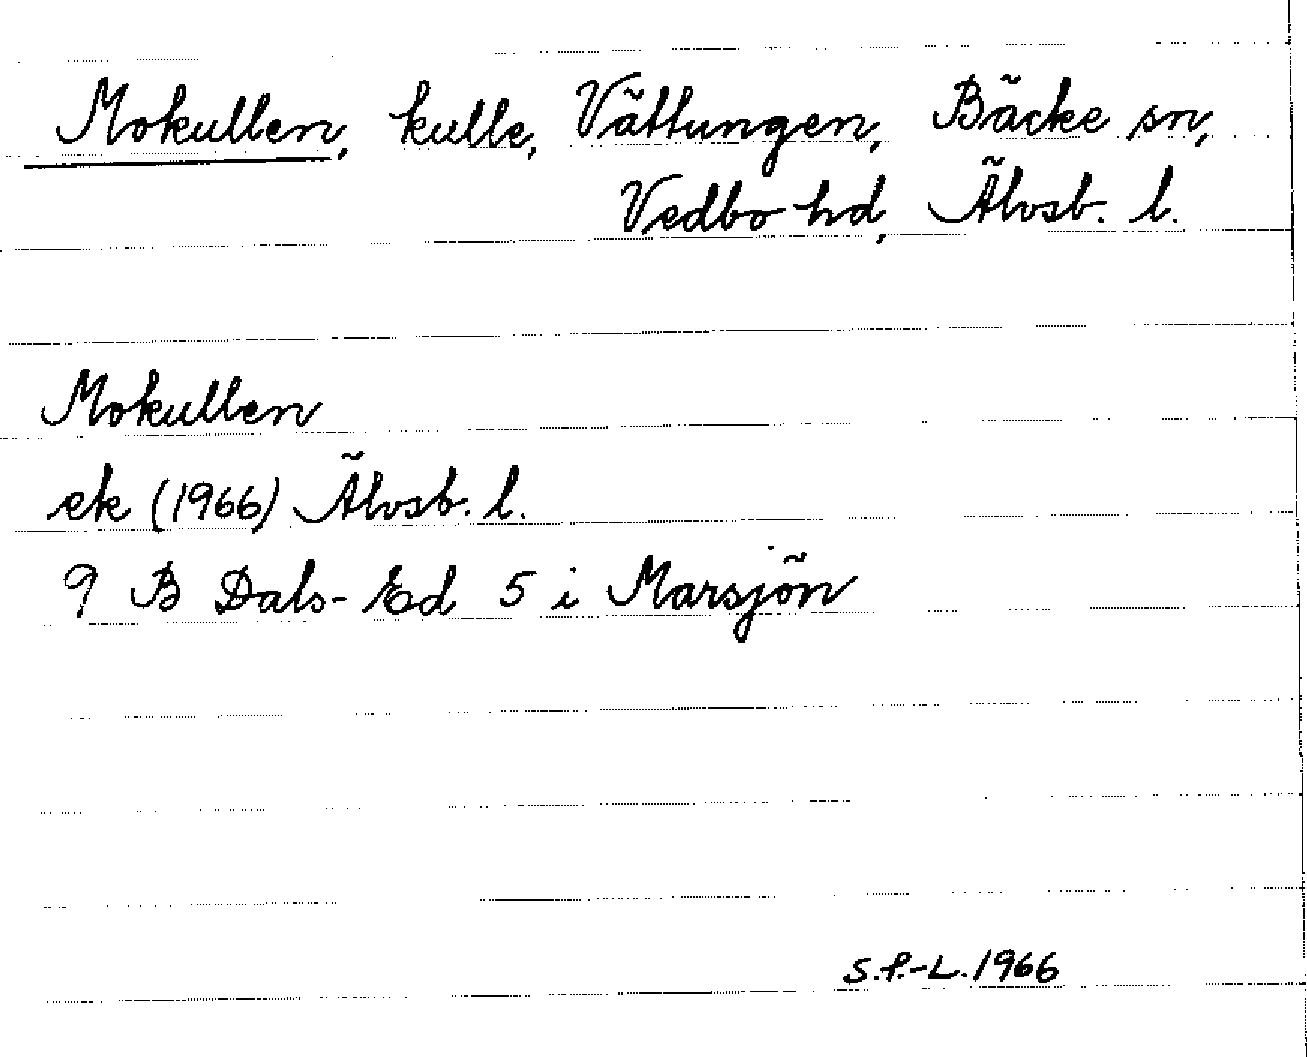 Mokullen, kulle, Vättungen, Bäcke sn,
Vedbo hd, Älvsb. l.
Mokullen
ek (1966) Älvsb. l.
9 B Dals-Ed 5 i Marsjön
S.P.-L. 1966